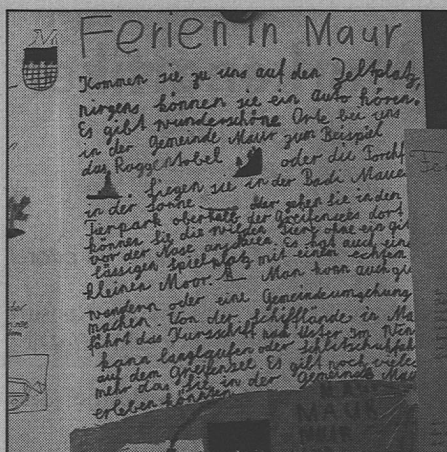 Ferien in Maur
Kommen sie zu uns auf den Zeltplatz,
nirgens können sie ein auto hören.
Es gibt wunderschöne Orte bei uns
in der Gemeinde Maur zum Beispiel
das Raggentobel. oder die Forch
liegen sie in der Badi Maur
in der Sonne oder gehen Sie in den
Tierpark oberhalb der Greifensees dort
können Sie die wilden Tiere ohne ein git
vor der Nase anschauen. Es hat auch eine
lässigen Spielplatz mit einem echtem
kleinen Moor. Man kann auch gu
wandern oder eine Gemeindeumgehung
machen. Von der Schifflände in Ma
fährt das Kursschiff nach Uster Im Win
kann langlaufen oder Schlitschuhfah
auf dem Greifensee. Es gibt noch viele
mehr das Sie in der Gemeinde Mau
erleben können.
MAUR